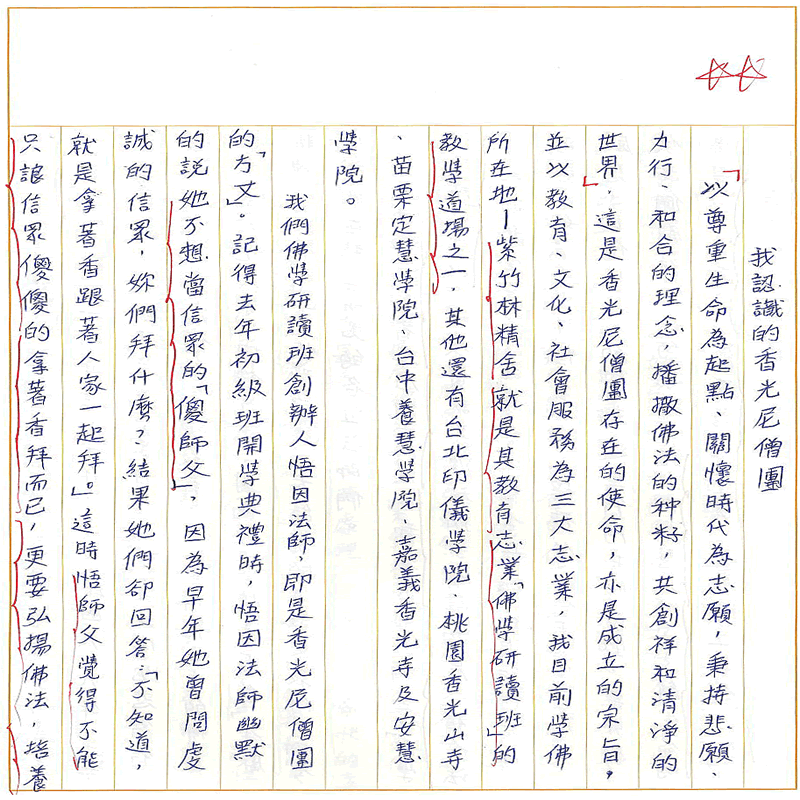 我認識的香光尼僧團
「以尊重生命為起點、關懷時代為志願，秉持悲願、
力行、和合的理念，播撒佛法的种籽，共創祥和清淨的
世界」，這是香光尼僧團存在的使命，亦是成立的宗旨。
並以教育、文化、社會服務為三大志業，我目前學佛
所在地—紫竹林精舍就是其教育志業「佛學研讀班」的
教學道場之一，其他還有台北印儀學院、桃園香光山寺
、苗栗定慧學院、台中養慧學院、嘉義香光寺及安慧
學院。
我們佛學研讀班創辦人悟因法師，即是香光尼僧團
的「方丈」。記得去年初級班開學典禮時，悟因法師幽默
的說她不想當信眾的「傻師父」，因為早年她曾問虔
誠的信眾，妳們拜什麼？結果她們卻回答：「不知道，
就是拿著香跟著人家一起拜。」這時悟師父覺得不能
只讓信眾傻傻的拿著香拜而已，更要弘揚佛法，培養